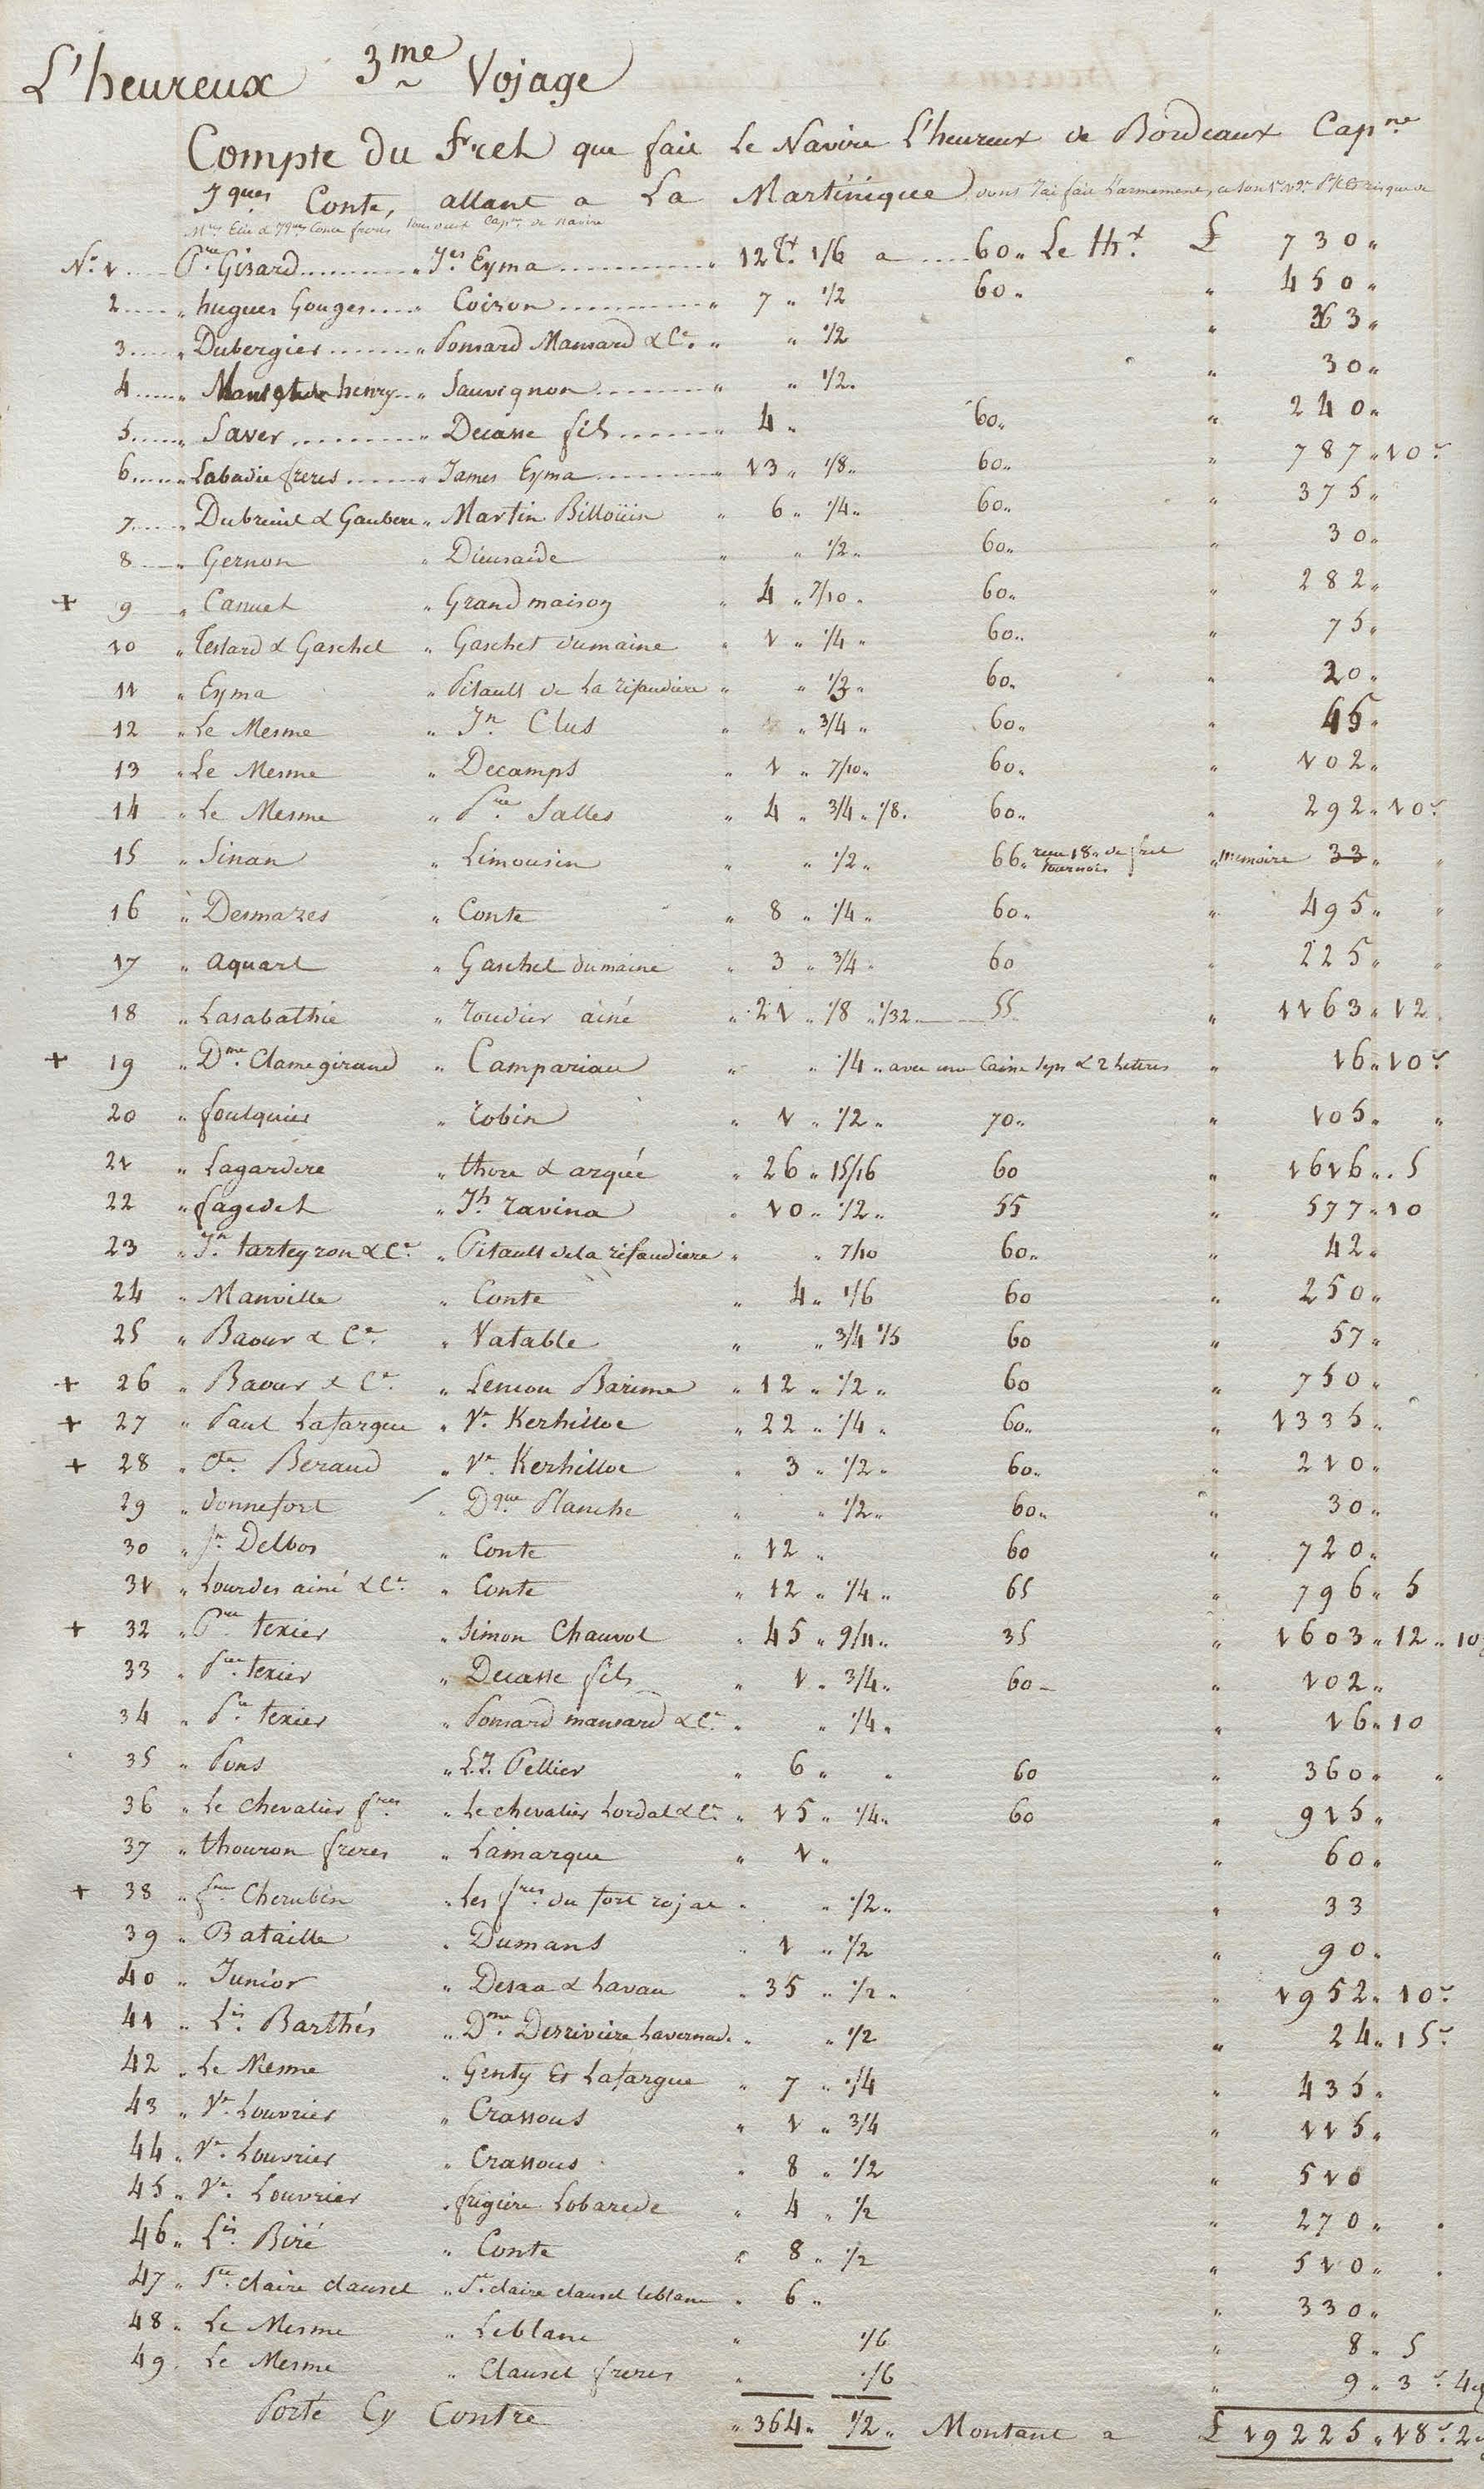 L'heureux 3me Vojage
Compte du fret que fait Le Navire L'heureux de Bordeaux Capne
Jques Conte, allant a La Martinique dont J'ai fait L'armement
Mrs Elie & Jques Conte freres Capne de navire
No. 1 Pre Girard Jes Eyma 12 Tx 1/6 a 60 Le thx £ 730
2 hugues Gouges Coiron 7 1/2 60 450
3 Dubergier Ponsard Mansard & Ce. 1/2 33
4 henry Sauvignon 1/2 30
5 Saver Decasse fils 4 60 240
6 Labadie freres James Eyma 13 1/8 60 787 10s
7 Dubreuil & Gaubere Martin Billoüin 6 1/4 60 375
8 Gernon Dieusaide 1/2 60 30
+ 9 Canuet Grandmaison 4 7/10 60 282
10 Testard & Gaschet Gaschet dumaine 1 1/4 60 75
11 Eyma Pitault de La rifaudiere 1/3 60 20
12 Le Mesme Jn. Clus 3/4 60 45
13 Le Mesme Decamps 1 7/10 60 102
14 Le Mesme Pre Salles 4 3/4 1/8 60 292 10s
15 Sinan Limousin 1/2 66 recu 18 de fret tournois memoire 33
16 Desmazes Conte 8 1/4 60 495
17 Aquart Gaschet dumaine 3 3/4 60 225
18 Lasabathie roudier ainé 21 1/8 1/32 55 1163 12
+ 19 Dme. Clamegirand Campariau 1/4 avec une Caisse & 2 Lettres 16 10s
20 foulquier robin 1 1/2 70 105
21 Lagardere thore & arquée 26 15/16 60 1616 5
22 fagedet Jh ravina 10 1/2 55 577 10
23 Jn tarteyron & Ce. Pitault de la rifaudiere 7/10 60 42
24 Manville Conte 4 1/6 60 250
25 Baour & Ce. Vatable 3/4 1/5 60 57
+ 26 Baour & Ce. Lenclou Barime 12 1/2 60 750
+ 27 Paul Lafargue Ve. Kerhilloc 22 1/4 60 1335
+ 28 Beraud Ve. Kerhilloc 3 1/2 60 210
29 donnefort Dque Planche 1/2 60 30
30 Jn Delbos Conte 12 60 720
31 Lourdes ainé & Ce. Conte 12 1/4 65 796 5
+ 32 Pre texier Simon Chauvot 45 9/11 35 1603 12 10
33 Pre texier Decasse fils 1 3/4 60 102
34 Pre texier Ponsard mansard & Ce. 1/4 16 10
35 Pons L. J. Pellier 6 60 360
36 Le Chevalier fres Le chevalier Lordal & Ce. 15 1/4 60 915
37 thouron freres Lamarque 1 60
+ 38 Cherubin Les fres du fort rojal 1/2 33
39 Bataille Dumans 1 1/2 90
40 Junior Desaa & Lavau 35 1/2 1952 10s
41 Lis Barthés Dme. Desriviere Lavernade 1/2 24 15s
42 Le Mesme Genty Et Lafargue 7 1/4 435
43 Ve. Louvrier Crassous 1 3/4 115
44 Ve. Louvrier Crassous 8 1/2 510
45 Ve. Louvrier frigiere Lobarede 4 1/2 270
46 Lis Biré Conte 8 1/2 510
47 Ste. claire clausel Ste. claire clausel leblanc 6 330
48 Le Mesme Leblanc 1/6 8 5
49 Le Mesme Clausel freres 1/6 9 3s 4
Porté Cy Contre 364 1/2 Montant a £ 19225 18s 2